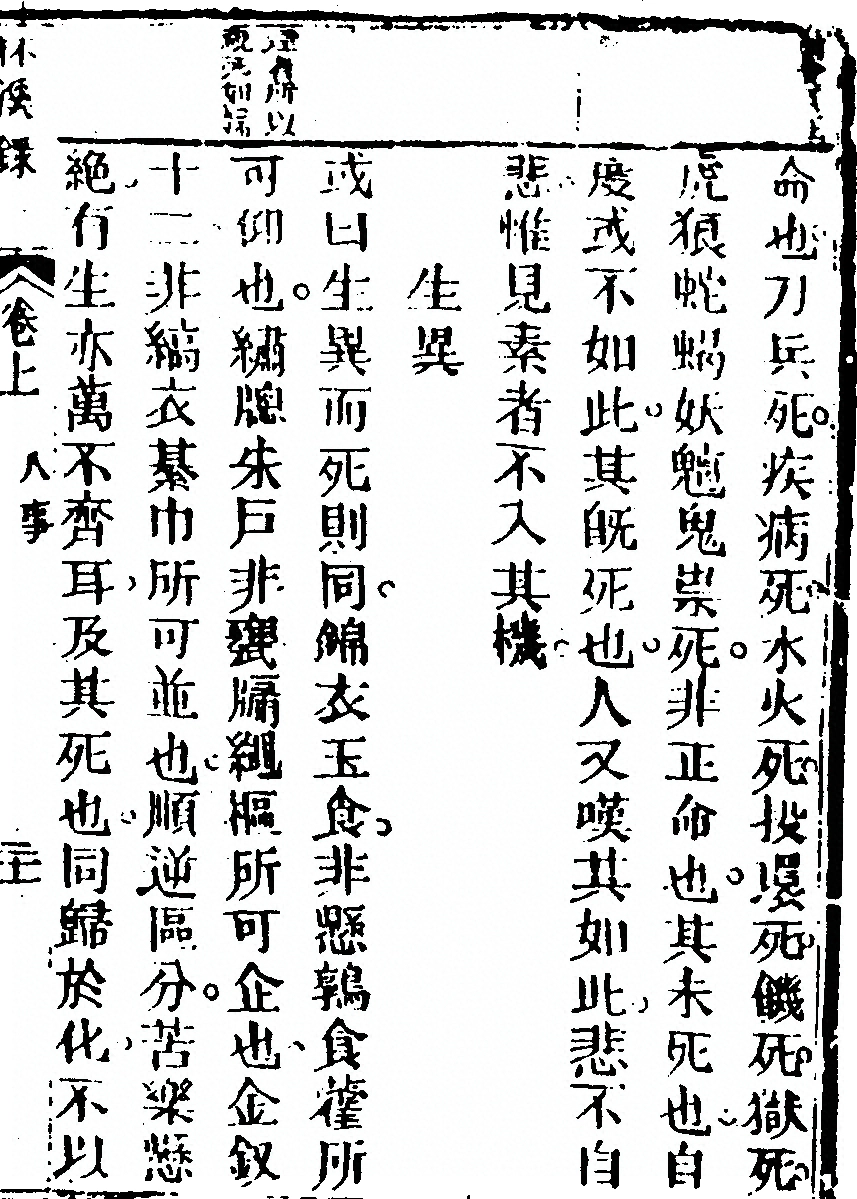 達者所以
視死如歸
命也刀兵死疾病死水火死投環死饑死獄死
虎狼蛇蝎妖魑鬼祟死非正命也其未死也自
度或不如此其既死也人又嘆其如此悲不自
悲惟見素者不入其機
生異
或曰生異而死則同錦衣玉食非懸鶉食藿所
可仰也繡牕朱戶非甕牖繩樞所可企也金釵
十二非縞衣綦巾所可並也順逆區分苦樂懸
絕有生亦萬不齊耳及其死也同歸於化不以
溪錄 卷上 人事